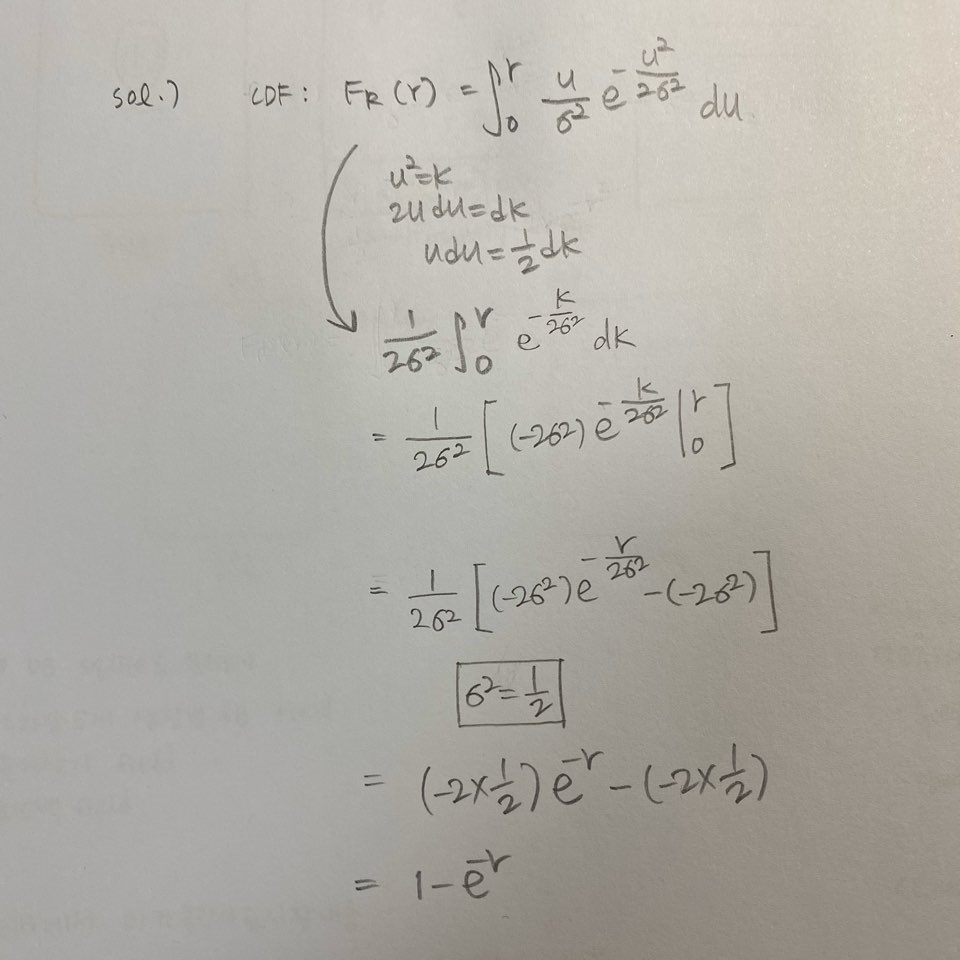 sol.) CDF: F_R(r) = ∫_0^r u/σ² e^(-u²/2σ²) du
u²=k
2u du = dk
u du = 1/2 dk
1/2σ² ∫_0^r e^(-k/2σ²) dk
= 1/2σ² [(-2σ²) e^(-k/2σ²) |_0^r]
= 1/2σ² [(-2σ²) e^(-r/2σ²) - (-2σ²)]
σ² = 1/2
= (-2×1/2) e^(-r) - (-2×1/2)
= 1 - e^(-r)